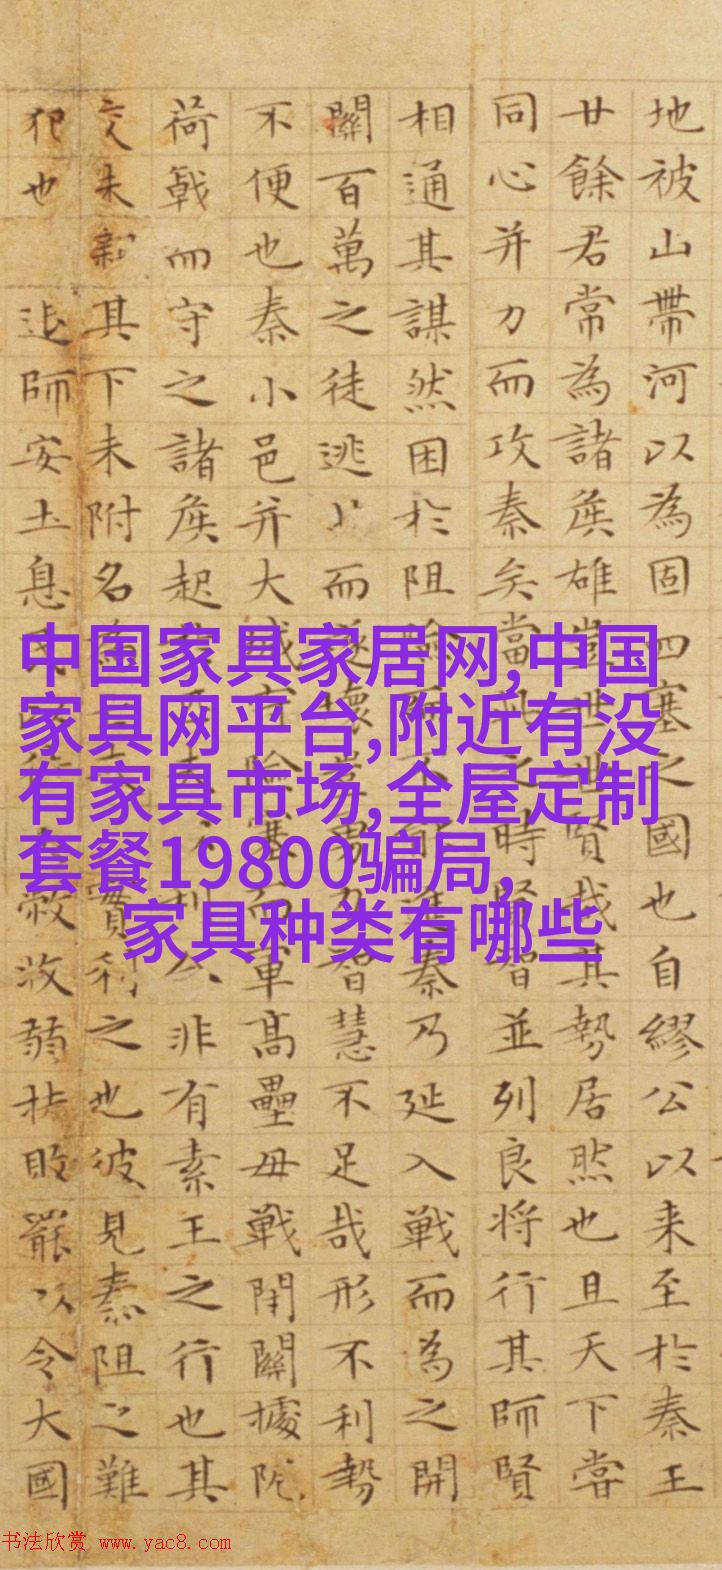 地被山帶河以為固四塞之國也自繆公以来至於秦王
廿餘君常為諸侯雄豈世世賢哉其勢居然也且天下嘗
同心并力而攻秦矣當此之時賢智並列良将行其師賢
相通其謀然困於阻險而不能進秦乃延入戰而為之開
關百萬之徒逃北而遂壞豈勇力智慧不足哉形不利勢
不便也秦小邑并大城守險塞而軍高壘毋戰閉關據阨
荷戟而守之諸侯起利合非有素王之行也其
交未親其下未附名為實利之也彼見秦阻之難
犯也退師安土息民收弱扶敗罷以令大國
中国家具家居网,中国
家具网平台,附近有没
有家具市场,全屋定制
套餐19800骗局,
家具种类有哪些
书法欣赏 www.yac8.com